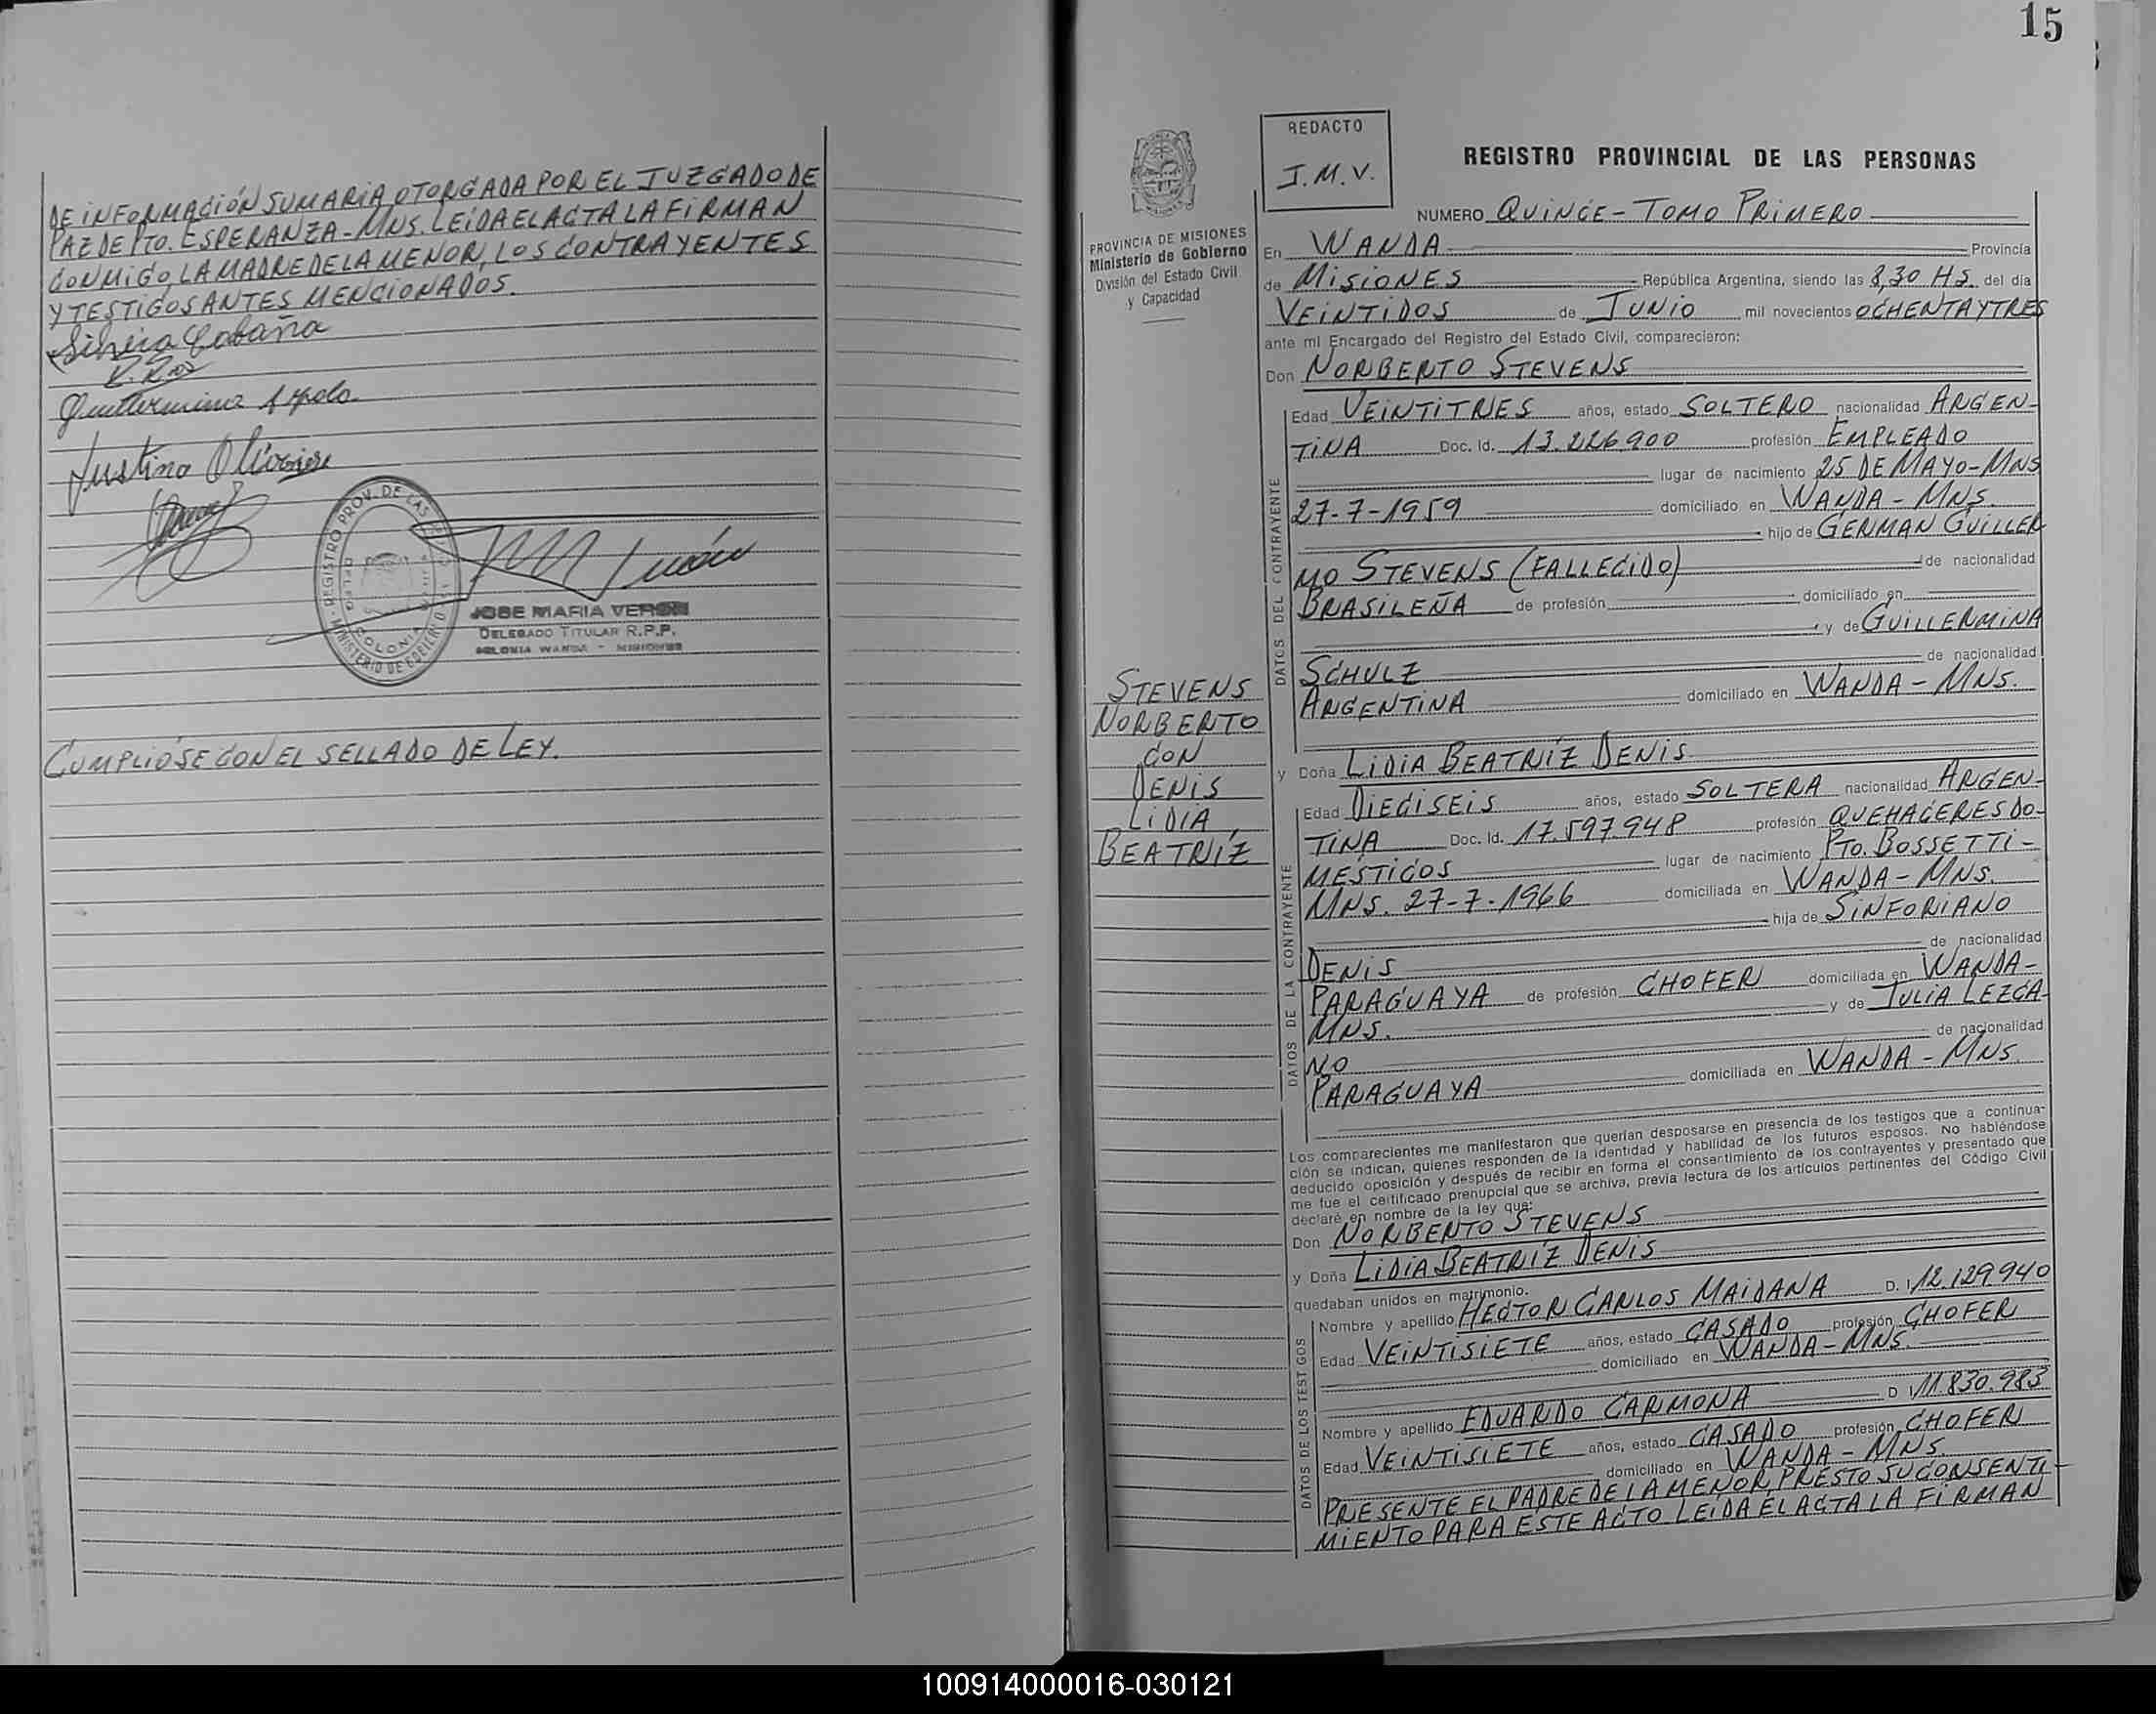 DE INFORMACIÓN SUMARIA OTORGADA POR EL JUZGADO DE
PAZ DE PTO. ESPERANZA-MNS. LEIDA EL ACTA LA FIRMAN
CONMIGO, LA MADRE DE LA MENOR, LOS CONTRAYENTES
Y TESTIGOS ANTES MENCIONADOS.
Guillermina
Justina
JOSE MARIA VERON
DELEGADO TITULAR R.P.P.
COLONIA WANDA - MISIONES
CUMPLIÓSE CON EL SELLADO DE LEY.
15
REDACTO
J.M.V.
REGISTRO PROVINCIAL DE LAS PERSONAS
PROVINCIA DE MISIONES
Ministerio de Gobierno
División del Estado Civil
y Capacidad
STEVENS
NORBERTO
CON
DENIS
LIDIA
BEATRÍZ
NUMERO QUINCE-TOMO PRIMERO
En WANDA Provincia
de MISIONES República Argentina, siendo las 8,30 HS. del día
VEINTIDOS de JUNIO mil novecientos OCHENTA Y TRES
ante mí Encargado del Registro del Estado Civil, comparecieron:
Don NORBERTO STEVENS
DATOS DEL CONTRAYENTE
Edad VEINTITRES años, estado SOLTERO nacionalidad ARGEN-
TINA Doc. Id. 13.226.900 profesión EMPLEADO
lugar de nacimiento 25 DE MAYO-MNS
27-7-1959 domiciliado en WANDA-MNS.
hijo de GERMAN GUILLER
MO STEVENS (FALLECIDO) de nacionalidad
BRASILEÑA de profesión domiciliado en
y de GUILLERMINA
SCHULZ de nacionalidad
ARGENTINA domiciliado en WANDA-MNS.
y Doña LIDIA BEATRÍZ DENIS
DATOS DE LA CONTRAYENTE
Edad DIECISEIS años, estado SOLTERA nacionalidad ARGEN-
TINA Doc. Id. 17.597.948 profesión QUEHACERES DO-
MÉSTICOS lugar de nacimiento PTO. BOSSETTI-
MNS. 27-7-1966 domiciliada en WANDA-MNS.
hija de SINFORIANO
DENIS de nacionalidad
PARAGUAYA de profesión CHOFER domiciliada en WANDA-
MNS. y de JULIA LEZCA-
NO de nacionalidad
PARAGUAYA domiciliada en WANDA-MNS.
Los comparecientes me manifestaron que querían desposarse en presencia de los testigos que a continua-
ción se indican, quienes responden de la identidad y habilidad de los futuros esposos. No habiéndose
deducido oposición y después de recibir en forma el consentimiento de los contrayentes y presentado que
me fue el certificado prenupcial que se archiva, previa lectura de los artículos pertinentes del Código Civil
declaré en nombre de la ley que:
Don NORBERTO STEVENS
y Doña LIDIA BEATRÍZ DENIS
quedaban unidos en matrimonio.
DATOS DE LOS TESTIGOS
Nombre y apellido HECTOR CARLOS MAIDANA D. I 12.129.940
Edad VEINTISIETE años, estado CASADO profesión CHOFER
domiciliado en WANDA-MNS.
Nombre y apellido EDUARDO CARMONA D I 11.830.983
Edad VEINTISIETE años, estado CASADO profesión CHOFER
domiciliado en WANDA-MNS.
PRESENTE EL PADRE DE LA MENOR, PRESTO SU CONSENTI-
MIENTO PARA ESTE ACTO LEIDA EL ACTA LA FIRMAN
100914000016-030121